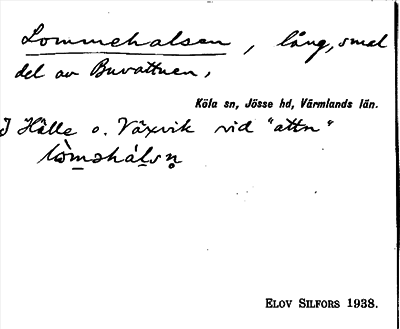 Lommehalsen, lång, smal
del av Buvattnen,
Köla sn, Jösse hd, Värmlands län.
I Hålle o. Växvik vid "attn"
lòməhálsn̥
ELOV SILFORS 1938.